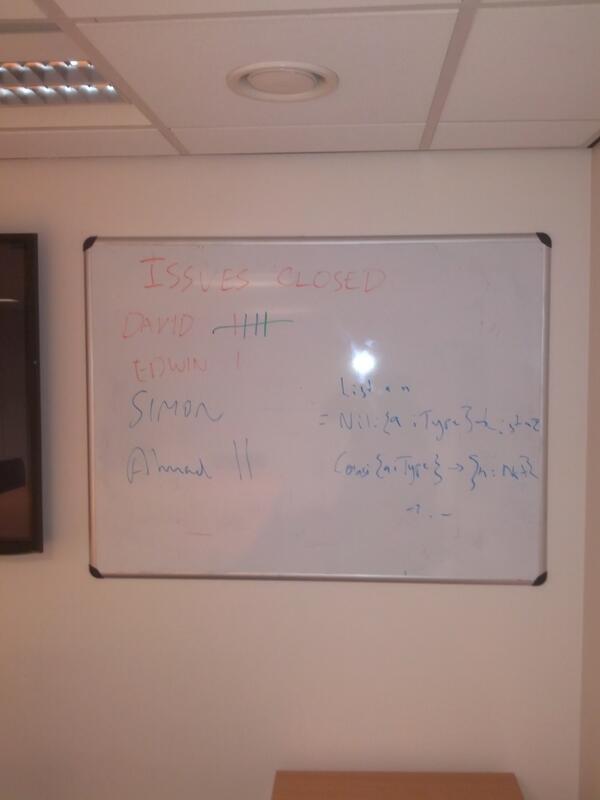 ISSUES CLOSED
DAVID
EDWIN I
SIMON
Ahmad II
List a n
= Nil : {a : Type} →
Cons : {a : Type} → {n : Nat}
→ . –